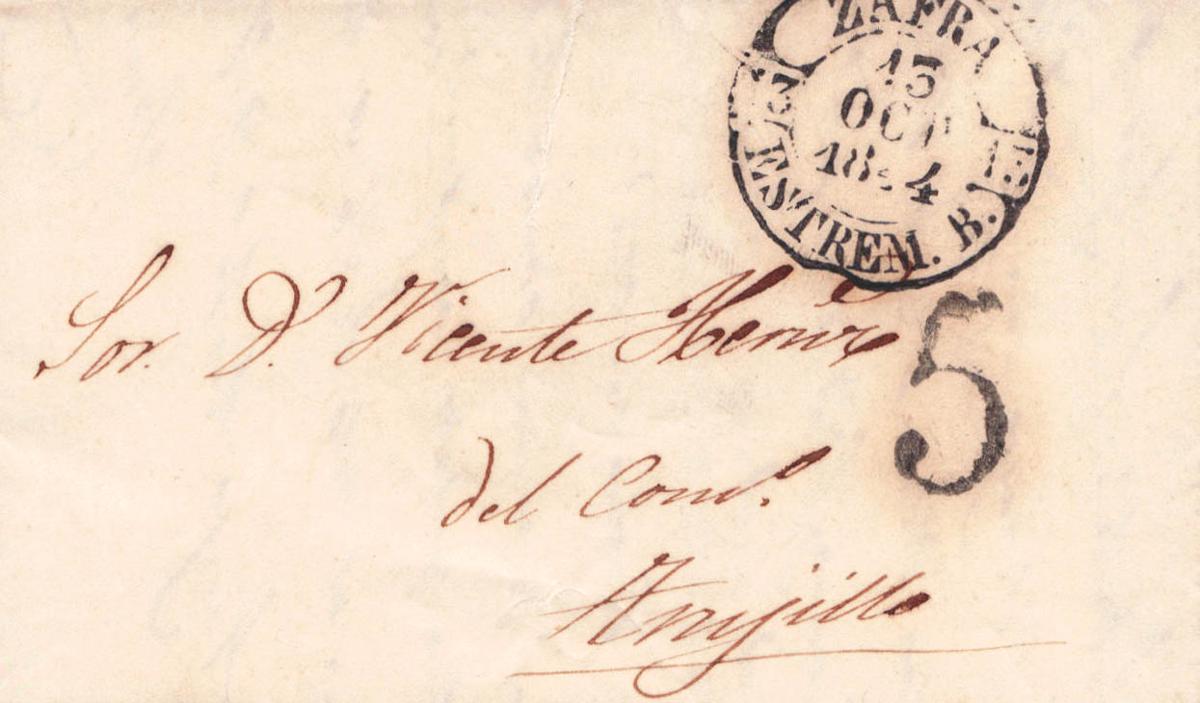 ZAFRA
15
OCT
18 4
ESTREM. B.
5
Sor. Dn. Vicente
del Comº.
Trujillo